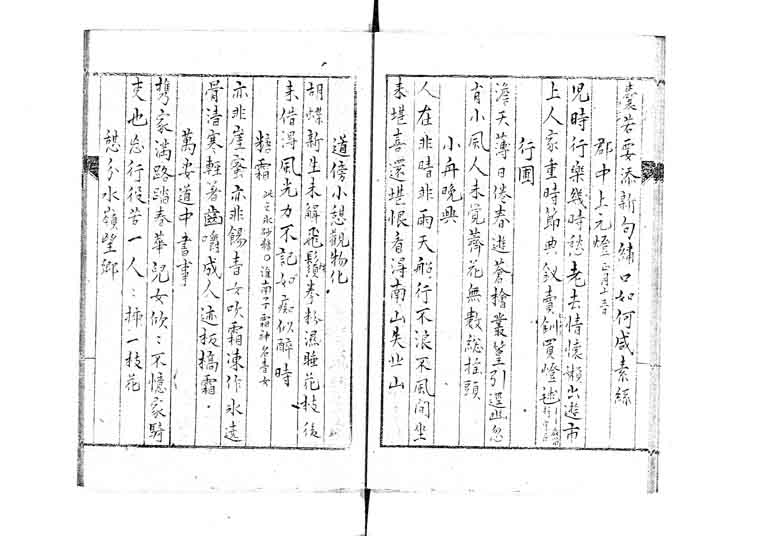 囊若要添新句繡口如何咸素絲
郡中上元燈
兒時行樂幾時愁老去情懷懶出遊市
上人家重時節典釵賣釧買燈毬
行圃
澹天薄日倦春遊蒼檜叢篁引逕幽忽
有小風人未覺薺花無數總搖頭
小舟晚興
人在非晴非雨天船行不浪不風間坐
來堪喜還堪恨看得南山失北山
道傍小憩觀物化
胡蝶新生未解飛鬚拳粉濕睡花枝後
來借得風光力不記如痴似醉時
糖霜 此言氷砂糖〇淮南子霜神名青女
亦非崖蜜亦非餳青女吹霜凍作氷透
骨清寒輕著齒嚼成人迹板橋霜
萬安道中書事
携家滿路踏春華兒女欣〻不憶家騎
吏也忘行役苦一人〻挿一枝花
憩分水嶺望鄉